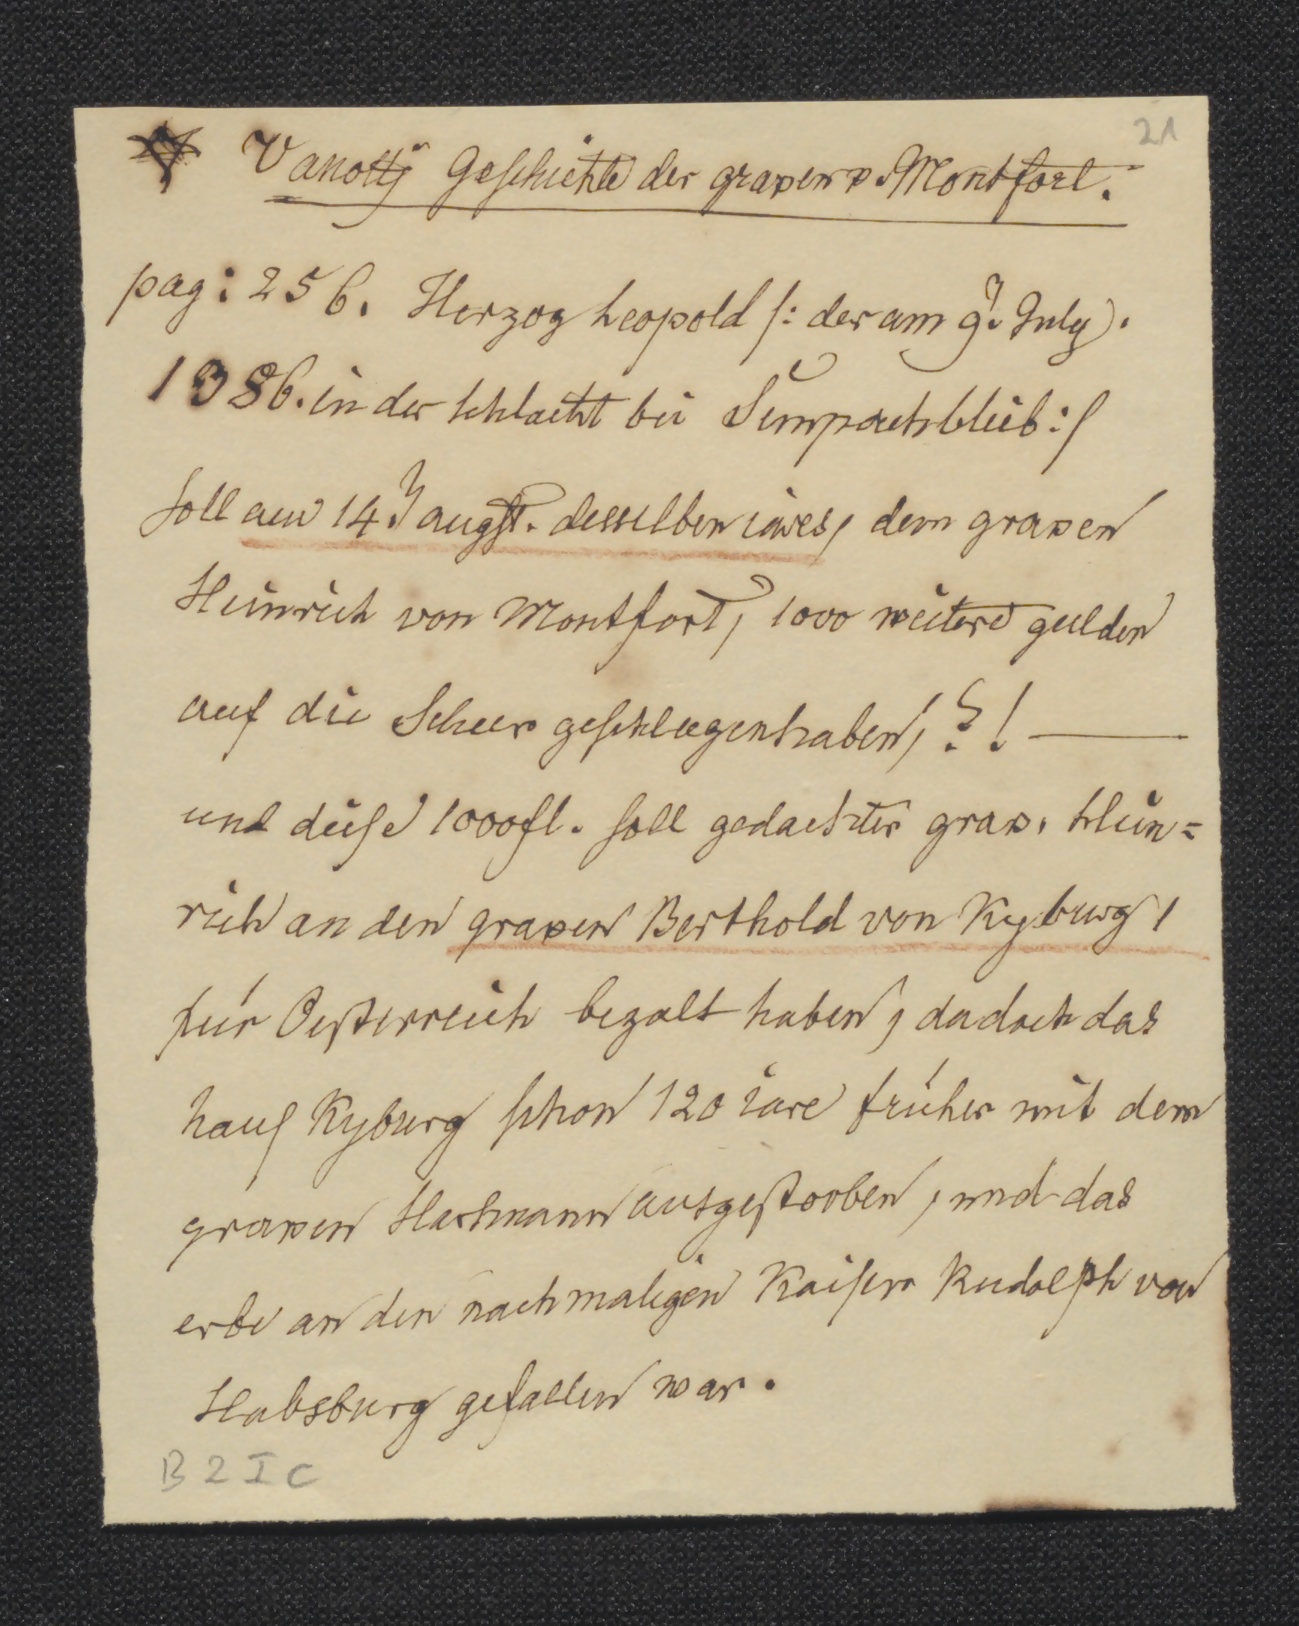 21
Vanottj Geschichte der graven v. Montfort.
pag: 256. Herzog Leopold /: der am 9. July).
1386. in der schlacht bei Sempach blieb:/
soll am 14. augst. desselben iares, dem graven
Heinrich von Montfort, 1000 weitere gulden
auf die Scheer geschlagen haben, ?! —
und diese 1000 fl. soll gedachter grav. Hein=
rich an den graven Berthold von Kyburg,
für Oesterreich bezalt haben, da doch das
haus Kyburg schon 120 iare früher mit dem
graven Hartmann ausgestorben, und das
erbe an den nachmaligen Kaiser Rudolph von
Habsburg gefallen war.
B 2 I C